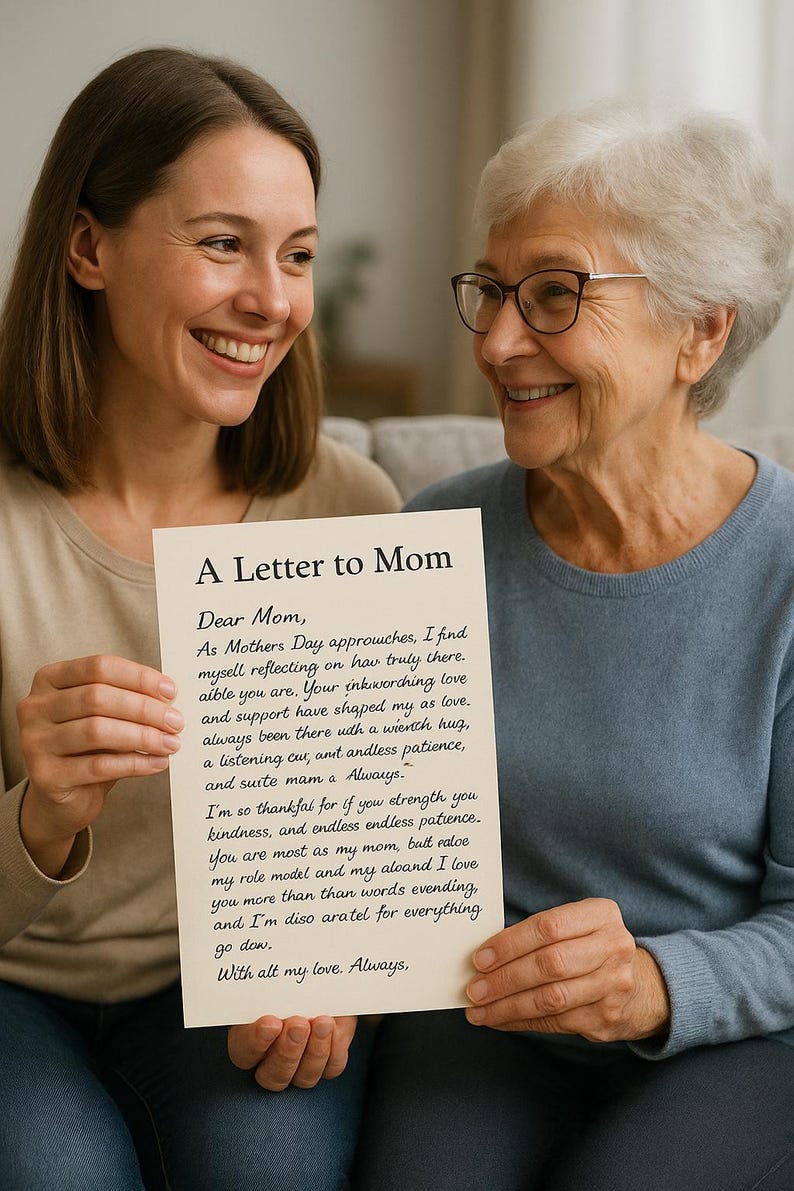 A Letter to Mom
Dear Mom,
As Mothers Day approuches, I find
myself reflecting on hau truly chere-
aible you are. Your inkuworching love
and support have shaped my as love.
always been there udh a wiench hug,
a listening cur, amt andless patience,
and suite mam a Always.
I'm so thankful for if yow strength you
kindness, and endless endless patience.
You are most as my mom, butt ealoe
my role model and my aloand I love
you more than than words evending,
and I'm diso aratel for everything
go dow.
With alt my love. Always,